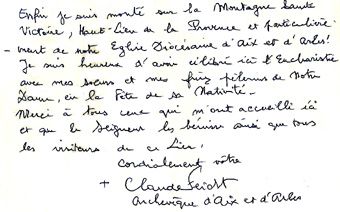 Enfin je suis monté sur la Montagne Sainte
Victoire, Haut-Lieu de la Provence et particulière-
ment de notre Eglise Diocésaine d'Aix et d'Arles!
Je suis heureux d'avoir célébré ici l'Eucharistie
avec mes sœurs et mes frères pèlerins de Notre
Dame, en la Fête de sa Nativité.
Merci à tous ceux qui m'ont accueilli ici
et que le Seigneur les bénisse ainsi que tous
les visiteurs de ce Lieu.
Cordialement vôtre
+ Claude Feidt
Archevêque d'Aix et d'Arles